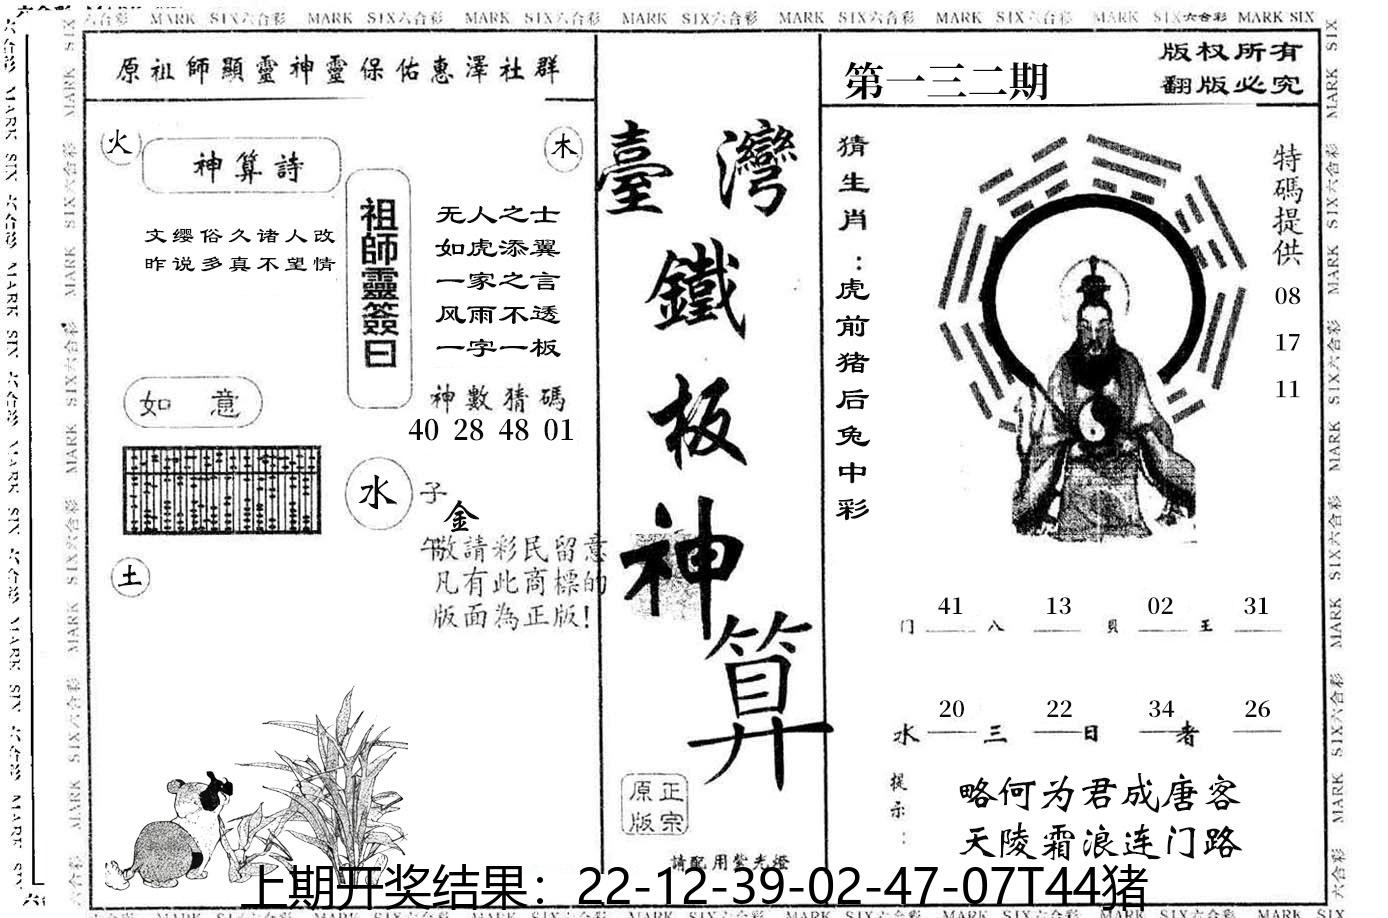 MARK SIX六合彩 MARK SIX六合彩 MARK SIX六合彩 MARK SIX六合彩 MARK SIX六合彩 MARK SIX六合彩 MARK SIX六合彩 MARK SIX
原祖師顯靈神靈保佑惠澤社群
火
神算詩
木
文缨俗久诸人改
昨说多真不望情
祖師靈簽曰
无人之士
如虎添翼
一家之言
风雨不透
一字一板
如意
神數猜碼
40 28 48 01
水
子
金
午
土
敬請彩民留意
凡有此商標的
版面為正版!
臺灣
鐵
板
神
算
正宗
原版
請配用紫光燈
第一三二期
版权所有
翻版必究
猜生肖:虎前猪后兔中彩
特碼提供
08
17
11
41 13 02 31
门 八 貝 王
20 22 34 26
水 三 日 者
提示:
略何为君成唐客
天陵霜浪连门路
上期开奖结果：22-12-39-02-47-07T44猪